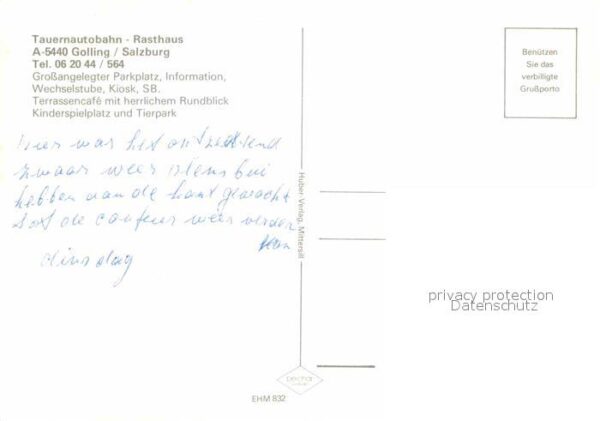 Tauernautobahn - Rasthaus
A-5440 Golling / Salzburg
Tel. 06 20 44 / 564
Großangelegter Parkplatz, Information,
Wechselstube, Kiosk, SB.
Terrassencafé mit herrlichem Rundblick
Kinderspielplatz und Tierpark
Hier was het ontzettend
zwaar weer
hebben aan de kant gewacht
tot de caufeur weer verder
dinsdag
Huber Verlag, Mittersill
EHM 832
Benützen
Sie das
verbilligte
Grußporto
privacy protection
Datenschutz